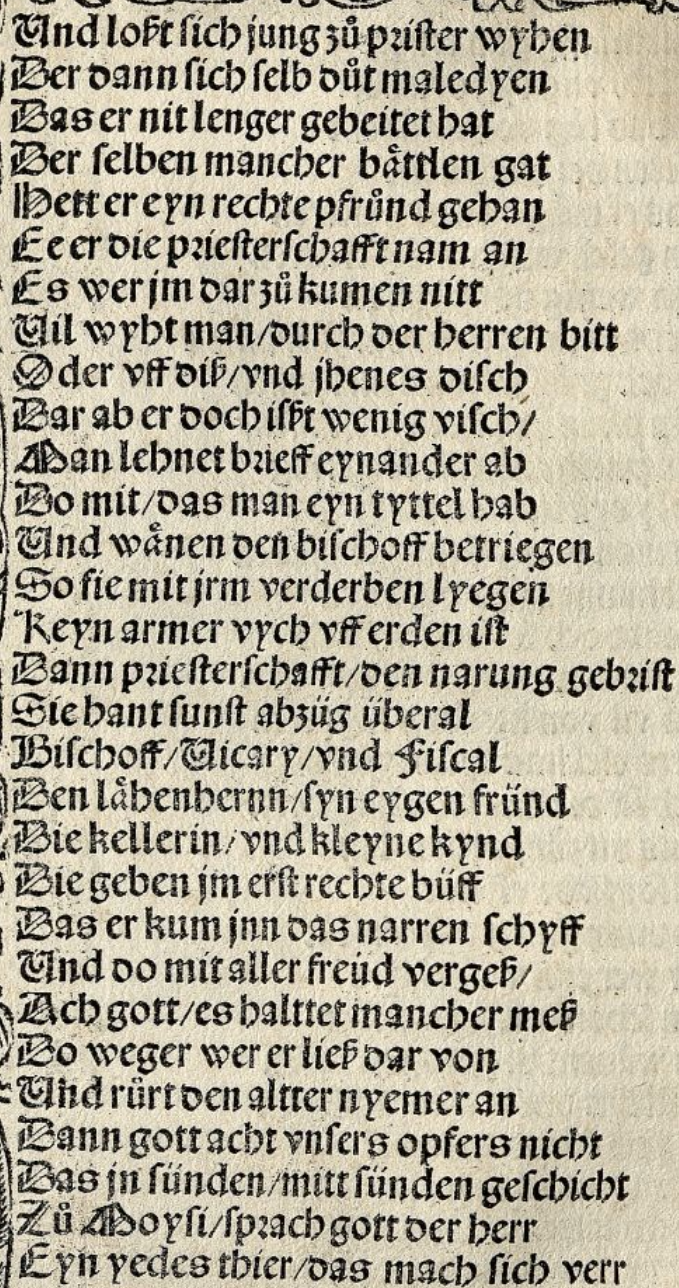 Und loßt sich jung zů priſter wyhen
Der dann ſich ſelb důt maledyen
Das er nit lenger gebeitet hat
Der ſelben mancher båttlen gat
Hett er eyn rechte pfrůnd gehan
Ee er die prieſterſchafft nam an
Es wer jm dar zů kumen nitt
Vil wyht man/durch der herren bitt
Oder vff diß/vnd jhenes diſch
Dar ab er doch iſßt wenig viſch/
Man lehnet brieff eynander ab
Do mit/das man eyn tyttel hab
Und wånen den biſchoff betriegen
So ſie mit jrm verderben lyegen
Keyn armer vych vff erden iſt
Dann prieſterſchafft/den narung gebriſt
Sie hant ſunſt abzüg überal
Biſchoff/Vicary/vnd Fiſcal
Den låhenhernn/ſyn eygen fründ
Die kellerin/vnd kleyne kynd
Die geben jm erſt rechte büff
Das er kum jnn das narren ſchyff
Und do mit aller freüd vergeß/
Ach gott/es halttet mancher meß
Do weger wer er ließ dar von
Und rürt den altter nyemer an
Dann gott acht vnſers opfers nicht
Das jn ſünden/mitt ſünden geſchicht
Zů Moyſi/ſprach gott der herr
Eyn yedes thier/das mach ſich verr